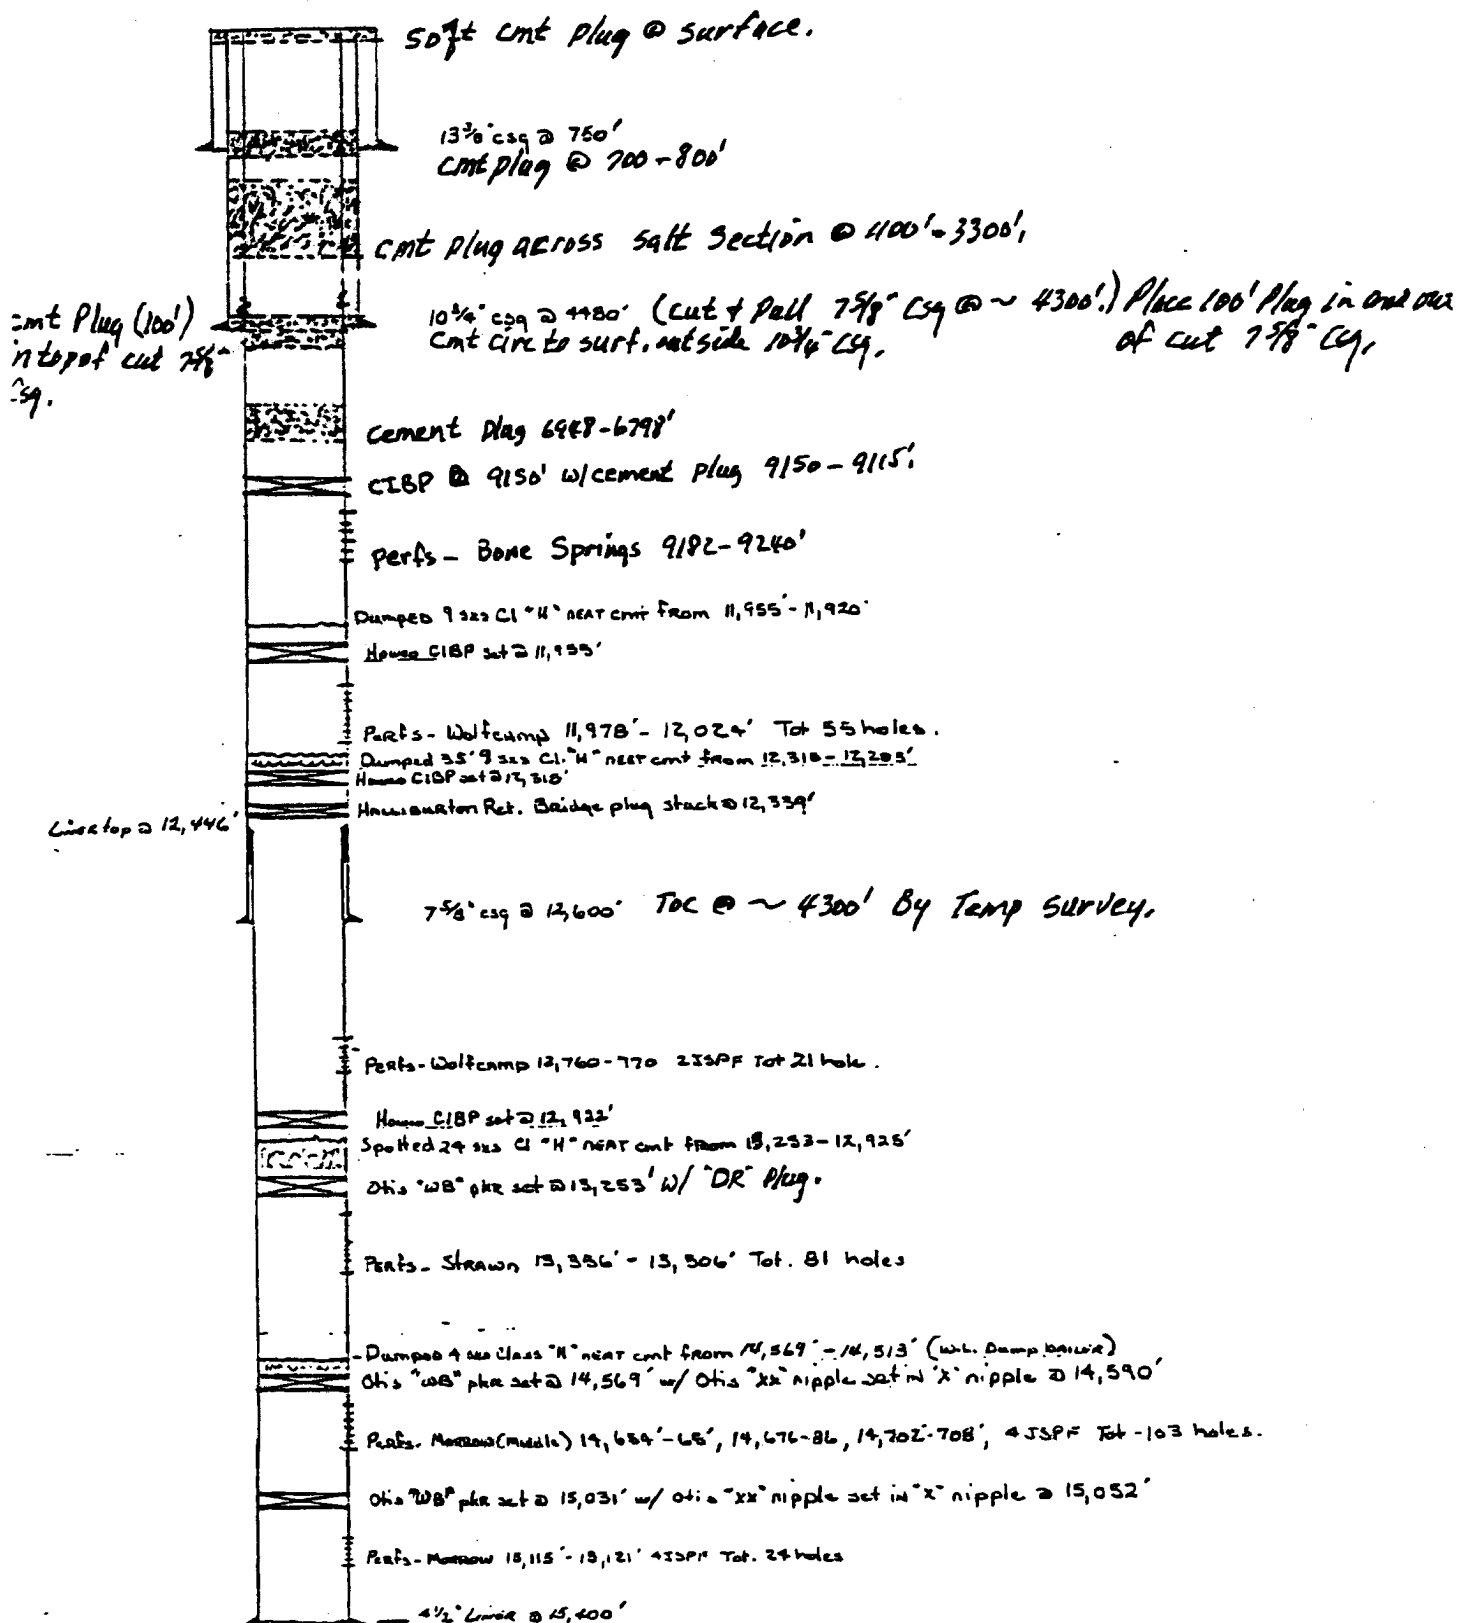 50ft cmt plug @ surface.
13 3/8" csg @ 750'
cmt plug @ 700-800'
cmt plug across salt section @ 1100'-3300'.
cmt Plug (100')
in top of cut 7 5/8"
csg.
10 3/4" csg @ 4480' (cut & Pull 7 5/8" csg @ ~ 4300'.) Place 100' Plug in and out
cmt circ to surf. outside 10 3/4" csg.
of cut 7 5/8" csg.
cement plug 6948-6798'
CIBP @ 9150' w/cement plug 9150-9115'.
Perfs- Bone Springs 9182-9240'
Dumped 9 sxs Cl "H" NEAT cmt from 11,955'-11,920'
Howco CIBP set @ 11,955'
Perfs- Wolfcamp 11,978'-12,024' Tot 55 holes.
Dumped 35' 9 sxs Cl. "H" neat cmt from 12,318-12,283'
Howco CIBP set @ 12,318'
Halliburton Ret. Bridge plug stuck @ 12,339'
Liner top @ 12,446'
7 5/8" csg @ 12,600' TOC @ ~ 4300' By Temp survey.
Perfs-Wolfcamp 12,760-770 2JSPF Tot 21 hole.
Howco CIBP set @ 12,922'
Spotted 24 sxs Cl "H" NEAT cmt from 13,253-12,925'
Otis "WB" pkr set @ 13,253' w/ "DR" Plug.
Perfs- Strawn 13,356'-13,506' Tot. 81 holes
Dumped 4 sxs Class "H" neat cmt from 14,569'-14,513' (W.L. Dump bailer)
Otis "WB" pkr set @ 14,569' w/ Otis "XX" nipple set in "X" nipple @ 14,590'
Perfs- Morrow (Middle) 14,654'-65', 14,676-86, 14,702'-708', 4 JSPF Tot-103 holes.
Otis "WB" pkr set @ 15,031' w/ Otis "XX" nipple set in "X" nipple @ 15,052'
Perfs-Morrow 15,115'-15,121' 4JSPF Tot. 24 holes
4 1/2" Liner @ 15,400'